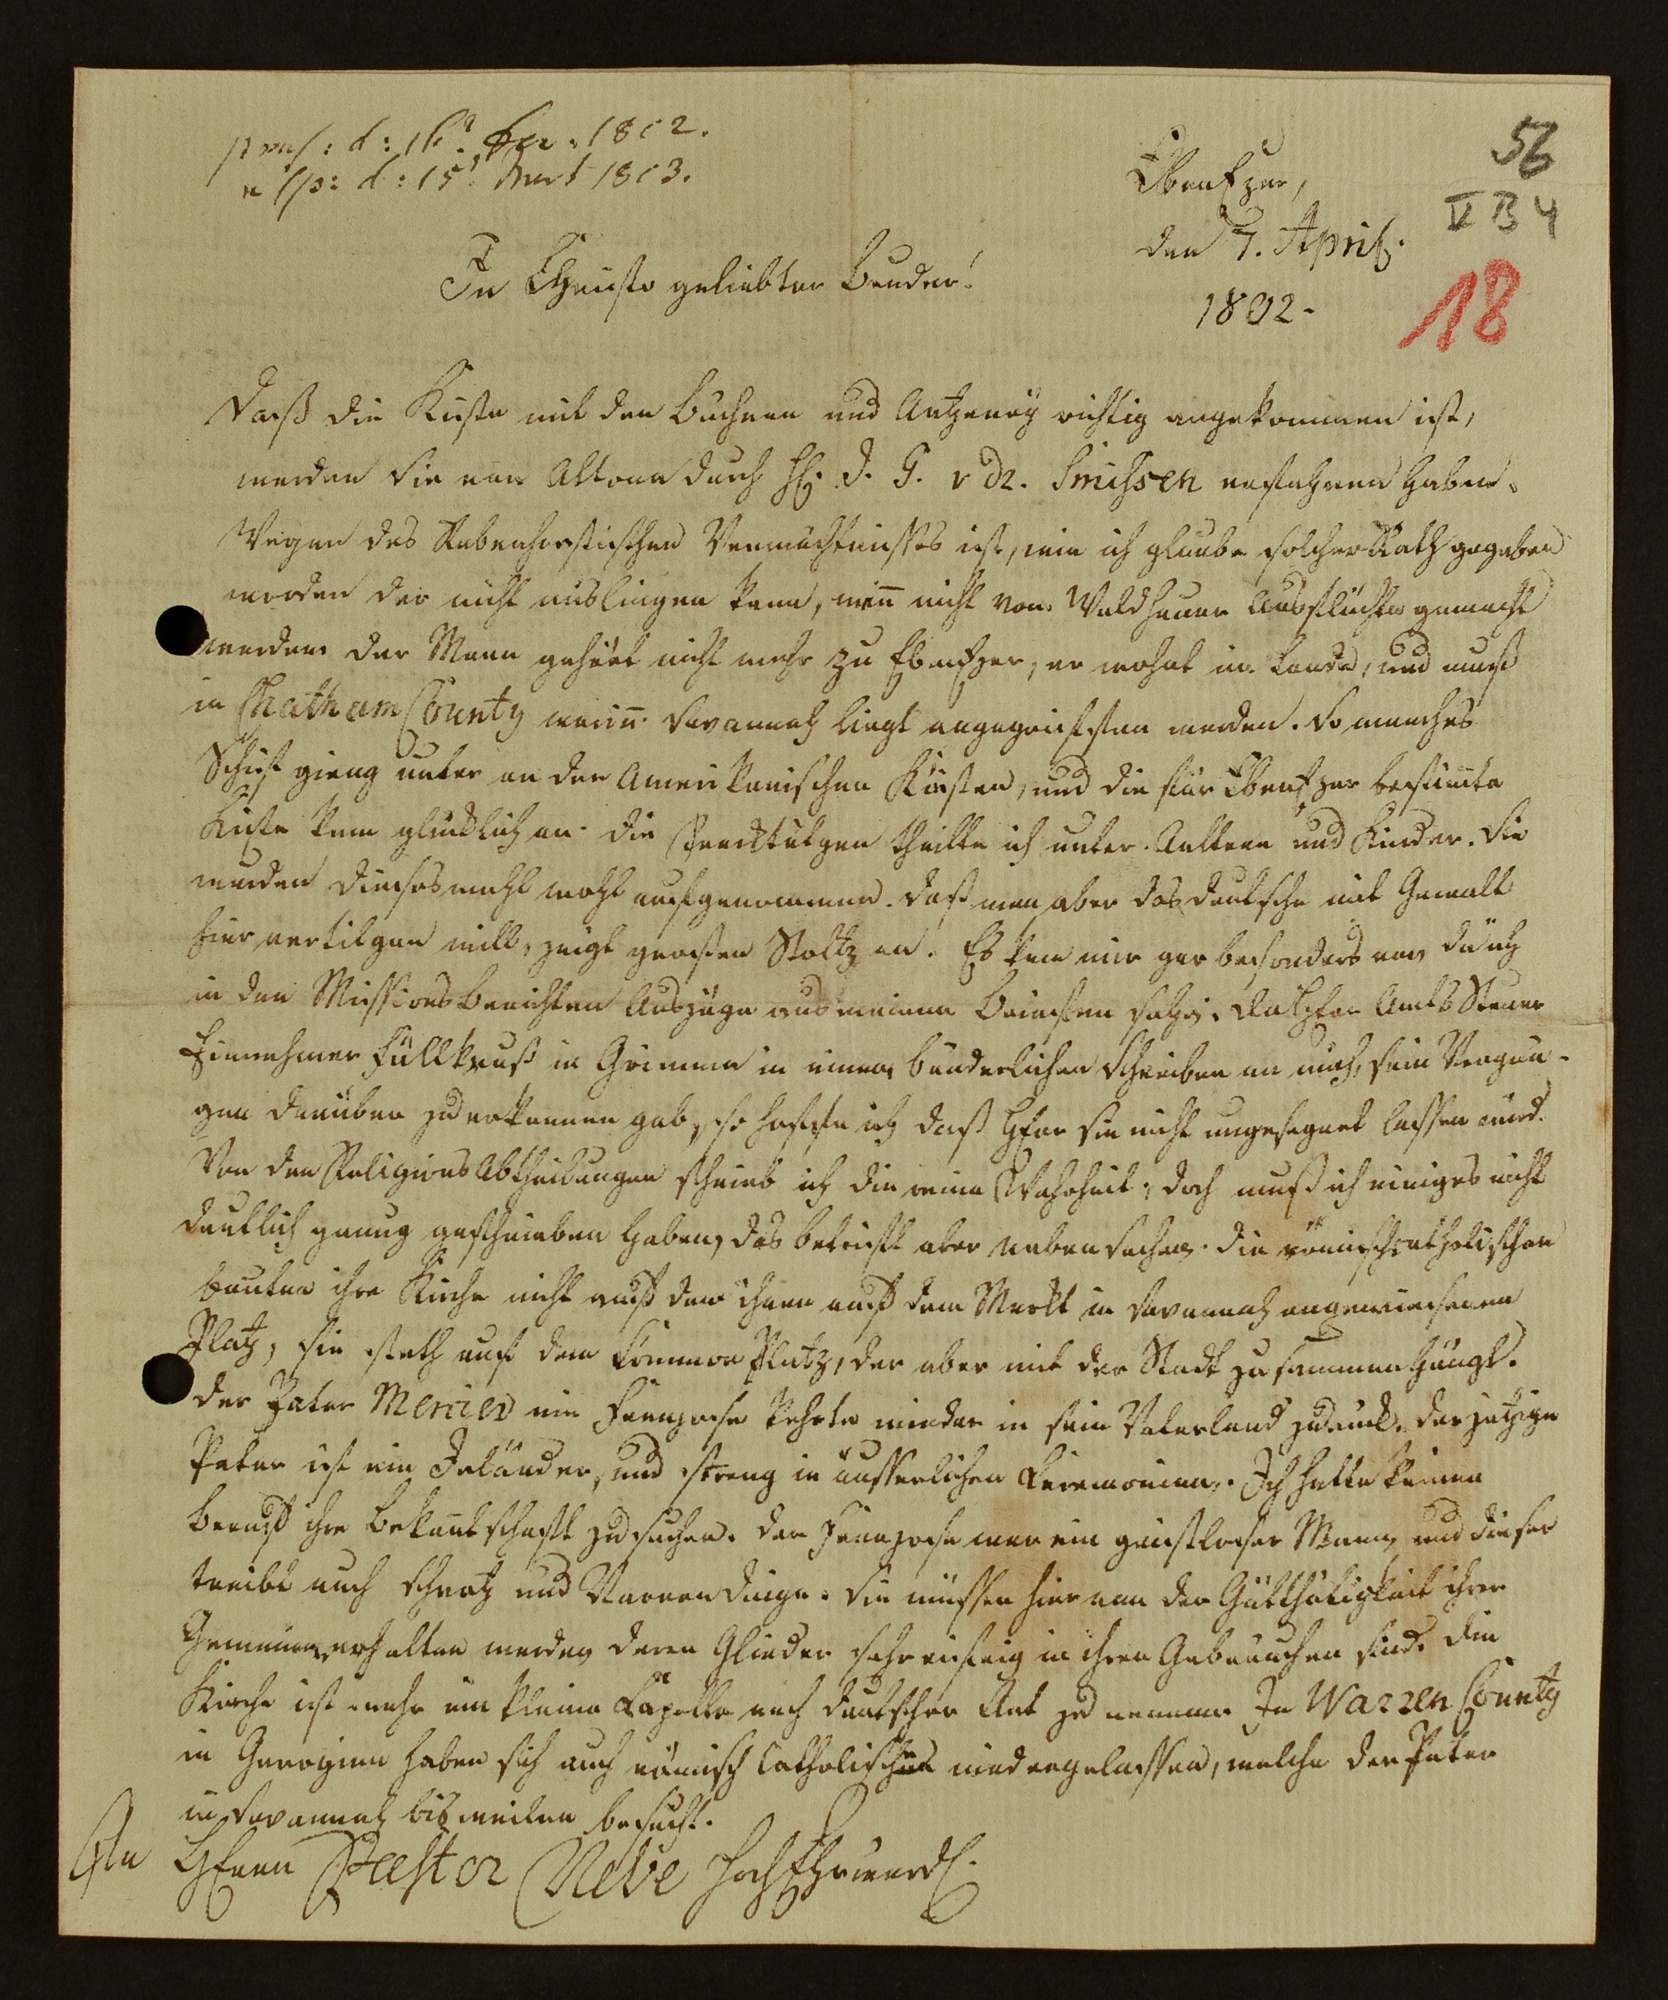 præs: d: 16
resp: d: 15. Mart 1803.
56
V B 4
18
Ebenezer,
den 7. April.
1802.
In Christo geliebter Bruder!
Daß die Kiste mit den Büchern und Artzeney richtig angekommen ist,
werden Sie von Altona durch H. J. G. v dr. Smissen erfahren haben.
Wegen des Rabenhorstischen Vermächtnisses ist, wie ich glaube solcher Rath gegeben
worden der nicht mislingen kann, wenn nicht von Waldhauer Ausflüchte gemacht
werden. Der Mann gehört nicht mehr zu Ebenezer, er wohnt im Lande, und muß
in Chatham County worinn Savannah liegt angegriffen werden. So manches
Schiff gieng unter an den Amerikanischen Küsten, und die für Ebenezer bestimte
Kiste kam glücklich an. Die Tracktätgen theilte ich unter Aeltern und Kinder. Sie
wurden diesesmahl wohl aufgenommen. Daß man aber das deutsche mit Gewalt
hier vertilgen will, zeigt grosen Stoltz an. Es kam mir gar besonders vor, da ich
in den Missions Berichten Auszüge aus meinen Briefen sahe. Da Herr Amts Steuer
Einnehmer Füllkruß in Grimma in einem brüderlichen Schreiben an mich, sein Vergnü-
gen darüber zu erkennen gab, so hoffe ich daß Herr sie nicht ungesegnet lassen wird.
Von den Religions Abtheilungen schrieb ich die reine Wahrheit, doch muß ich einiges nicht
deutlich genug geschrieben haben, das betrifft aber Nebensachen. Die römischcatholischen
bauten ihre Kirche nicht auf den ihnen auf dem Markt in Savannah angewiesenen
Platz, sie steth auf dem Common Platz, der aber mit der Stadt zusammen hängt.
Der Pater Mercier ein Franzose kehrte wieder in sein Vaterland zurück. Der jetzige
Pater ist ein Irländer, und streng in äusserlichen Ceremonien. Ich hatte keinen
Beruf ihre Bekantschaft zu suchen. Der Franzose war ein geistloser Mann, und dieser
treibt auch Scherz und Narrendinge. Sie müssen hier von der Gutthätigkeit ihrer
Gemeine erhalten werden deren Glieder sehr eifrig in ihren Gebräuchen sind. Die
Kirche ist mehr ein kleine Capelle nach deutscher Art zu nennen. In Warren County
in Georgien haben sich auch römisch Catholische niedergelassen, welche der Pater
in Savannah bisweilen besucht.
An Herrn Pastor Nebe HochEhrwürd.